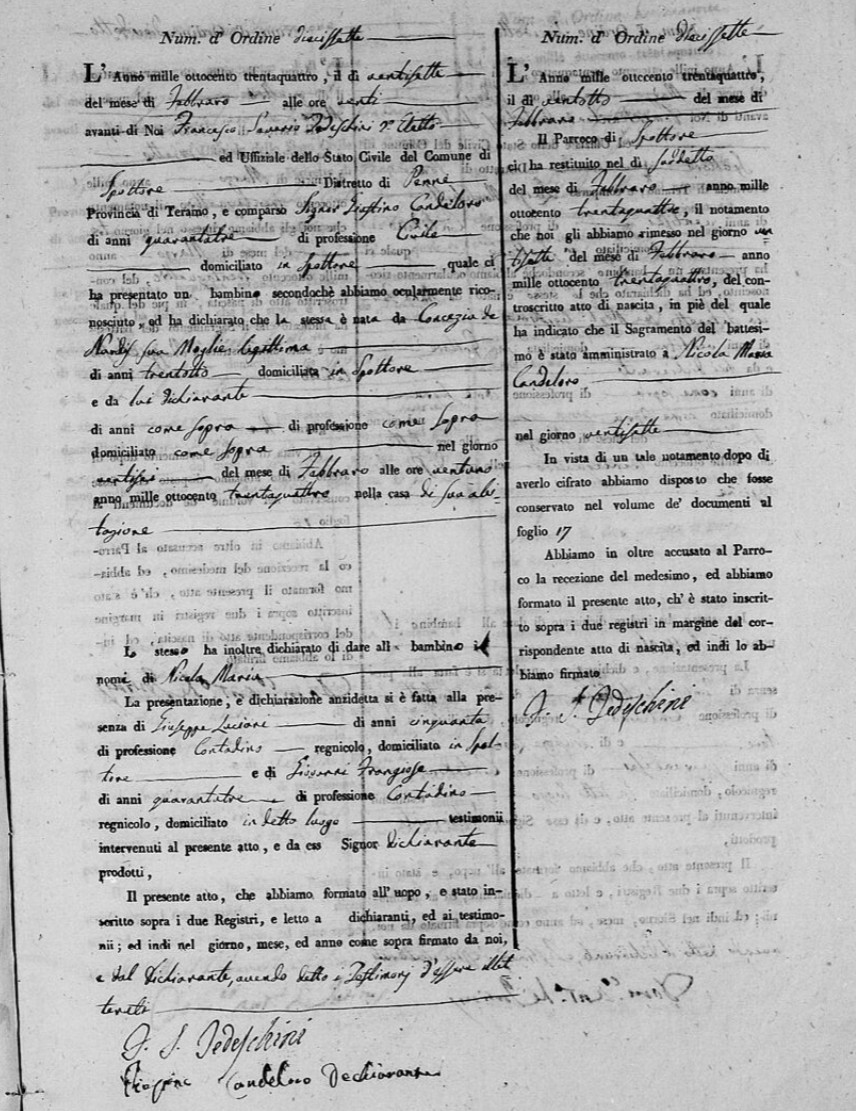 Num. d' Ordine diecissette
L' Anno mille ottocento trentaquattro, il dì ventisette
del mese di Febbraro alle ore venti
avanti di Noi Francesco Saverio Tedeschini
ed Uffiziale dello Stato Civile del Comune di
Spoltore Distretto di Penne
Provincia di Teramo, e comparso Signor Candeloro
di anni quarantatre di professione Civile
domiciliato in Spoltore quale ci
ha presentato un bambino secondochè abbiamo ocularmente rico-
nosciuto, ed ha dichiarato che lo stesso è nato da Concezia de
Nardis sua Moglie legittima
di anni trentotto domiciliata in Spoltore
e da lui dichiarante
di anni come sopra di professione come sopra
domiciliato come sopra nel giorno
ventisei del mese di Febbraro alle ore ventuno
anno mille ottocento trentaquattro nella casa di sua abi
tazione
Lo stesso ha inoltre dichiarato di dare all bambino i
nomi di Nicola Maria
La presentazione, e dichiarazione anzidetta si è fatta alla pre-
senza di Giuseppe Luciani di anni cinquanta
di professione Contadino regnicolo, domiciliato in Spol-
tore e di Giovanni
di anni quarantatre di professione Contadino
regnicolo, domiciliato in detto luogo testimonii
intervenuti al presente atto, e da ess Signor dichiarante
prodotti,
Il presente atto, che abbiamo formato all' uopo, e stato in-
scritto sopra i due Registri, e letto a dichiaranti, ed ai testimo-
nii; ed indi nel giorno, mese, ed anno come sopra firmato da noi,
e dal Dichiarante, avendo detto i Testimonj d'essere illet
terati
F. S. Tedeschini
Candeloro Dechiarante
Num. d' Ordine diecissette
L' Anno mille ottocento trentaquattro,
il dì ventotto del mese di
Febbraro
Il Parroco di Spoltore
ci ha restituito nel dì suddetto
del mese di Febbraro anno mille
ottocento trentaquattro, il notamento
che noi gli abbiamo rimesso nel giorno ven
tisette del mese di Febbraro anno
mille ottocento trentaquattro, del con-
troscritto atto di nascita, in piè del quale
ha indicato che il Sagramento del battesi-
mo è stato amministrato a Nicola Maria
Candeloro
nel giorno ventisette
In vista di un tale notamento dopo di
averlo cifrato abbiamo disposto che fosse
conservato nel volume de' documenti al
foglio 17
Abbiamo in oltre accusato al Parro-
co la recezione del medesimo, ed abbiamo
formato il presente atto, ch' è stato inscrit-
to sopra i due registri in margine del cor-
rispondente atto di nascita, ed indi lo ab-
biamo firmato
F. S. Tedeschini